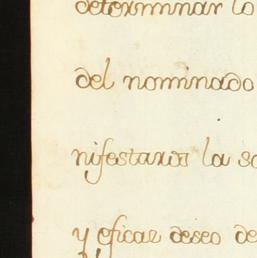 determinar lo
del nominado
nifestaros la
y eficaz deseo de